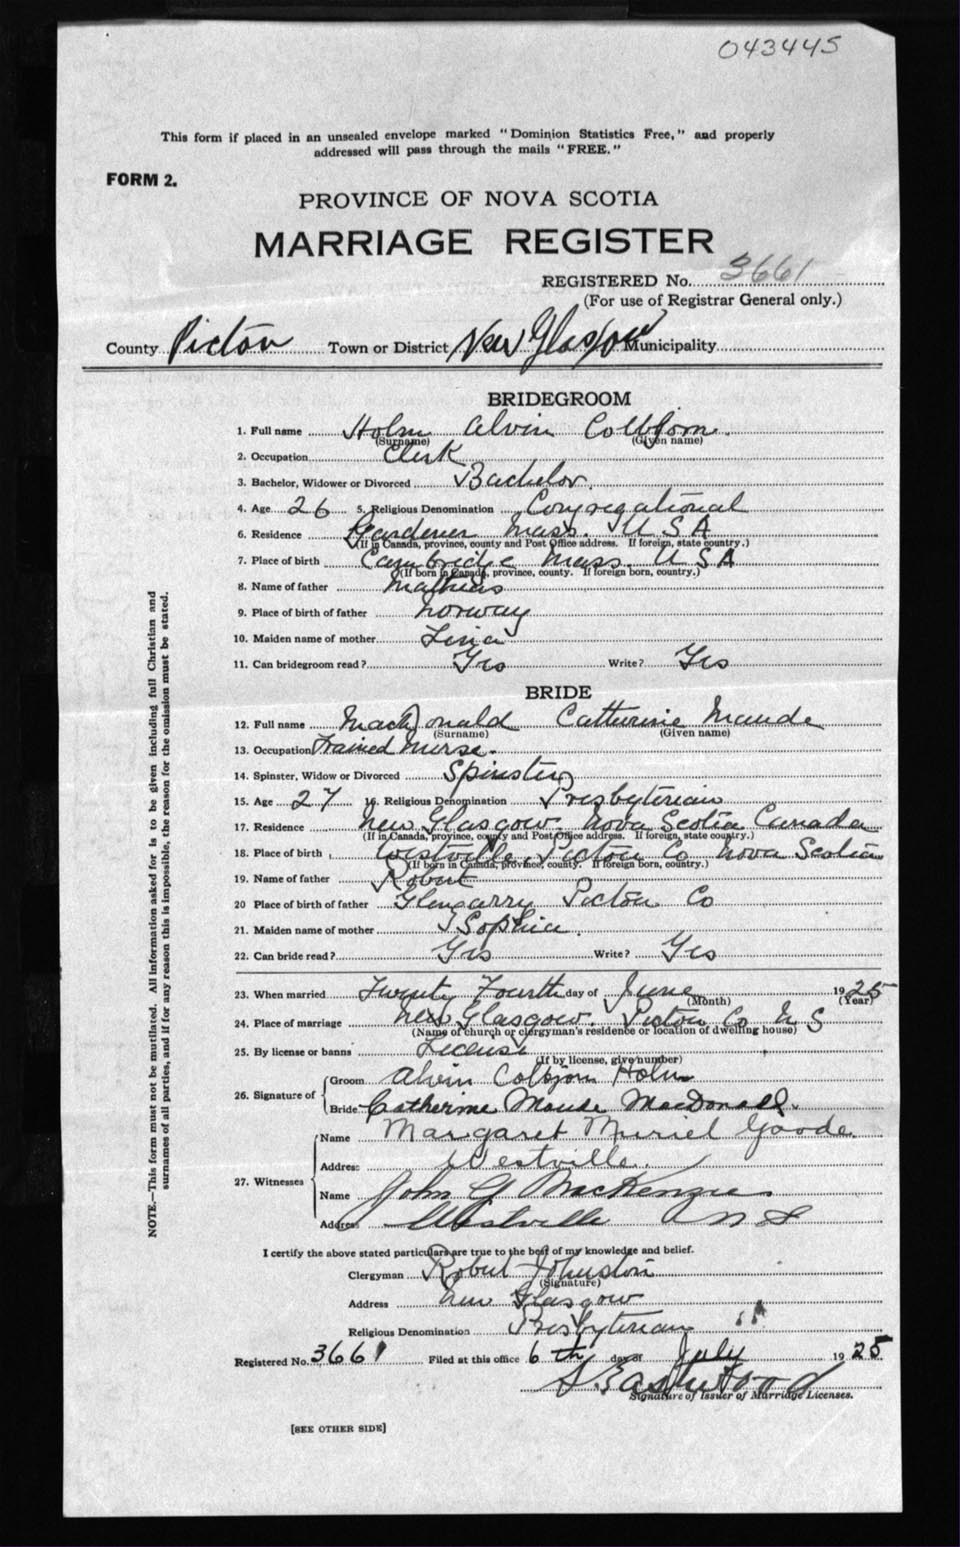 043445
This form if placed in an unsealed envelope marked "Dominion Statistics Free," and properly
addressed will pass through the mails "FREE."
FORM 2.
PROVINCE OF NOVA SCOTIA
MARRIAGE REGISTER
REGISTERED No. 3661
(For use of Registrar General only.)
County Pictou Town or District New Glasgow Municipality
BRIDEGROOM
1. Full name Holm Alvin Colbjorn
(Surname) (Given name)
2. Occupation Clerk
3. Bachelor, Widower or Divorced Bachelor.
4. Age 26 5. Religious Denomination Congregational
6. Residence Gardener Mass. U S A
(If in Canada, province, county and Post Office address. If foreign, state country.)
7. Place of birth Cambridge Mass. U S A
(If born in Canada, province, county. If foreign born, country.)
8. Name of father Mathias
9. Place of birth of father Norway
10. Maiden name of mother Lina
11. Can bridegroom read? Yes Write? Yes
BRIDE
12. Full name MacDonald Catherine Maude
(Surname) (Given name)
13. Occupation Trained Nurse.
14. Spinster, Widow or Divorced Spinster
15. Age 27 16. Religious Denomination Presbyterian
17. Residence New Glasgow. Nova Scotia Canada
(If in Canada, province, county and Post Office address. If foreign, state country.)
18. Place of birth Westville, Pictou Co Nova Scotia
(If born in Canada, province, county. If foreign born, country.)
19. Name of father Robert
20 Place of birth of father Glengarry Pictou Co
21. Maiden name of mother Sophia.
22. Can bride read? Yes Write? Yes
23. When married Twenty Fourth day of June 1925
(Month) (Year)
24. Place of marriage New Glasgow. Pictou Co N S
(Name of church or clergyman's residence or location of dwelling house)
25. By license or banns License
(If by license, give number)
26. Signature of Groom Alvin Colbjorn Holm
Bride Catherine Maude MacDonald.
27. Witnesses Name Margaret Muriel Goode.
Address Westville.
Name John G MacKenzie
Address Westville N S
I certify the above stated particulars are true to the best of my knowledge and belief.
Clergyman Robert Johnston
(Signature)
Address New Glasgow
Religious Denomination Presbyterian
Registered No. 3661 Filed at this office 6th day of July 1925
Signature of Issuer of Marriage Licenses.
[SEE OTHER SIDE]
NOTE.—This form must not be mutilated. All information asked for is to be given including full Christian and
surnames of all parties, and if for any reason this is impossible, the reason for the omission must be stated.